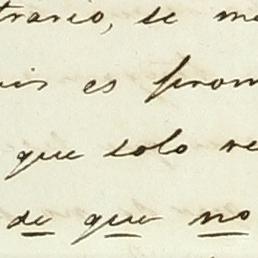 trario, se me
es prom
que solo re
de que no